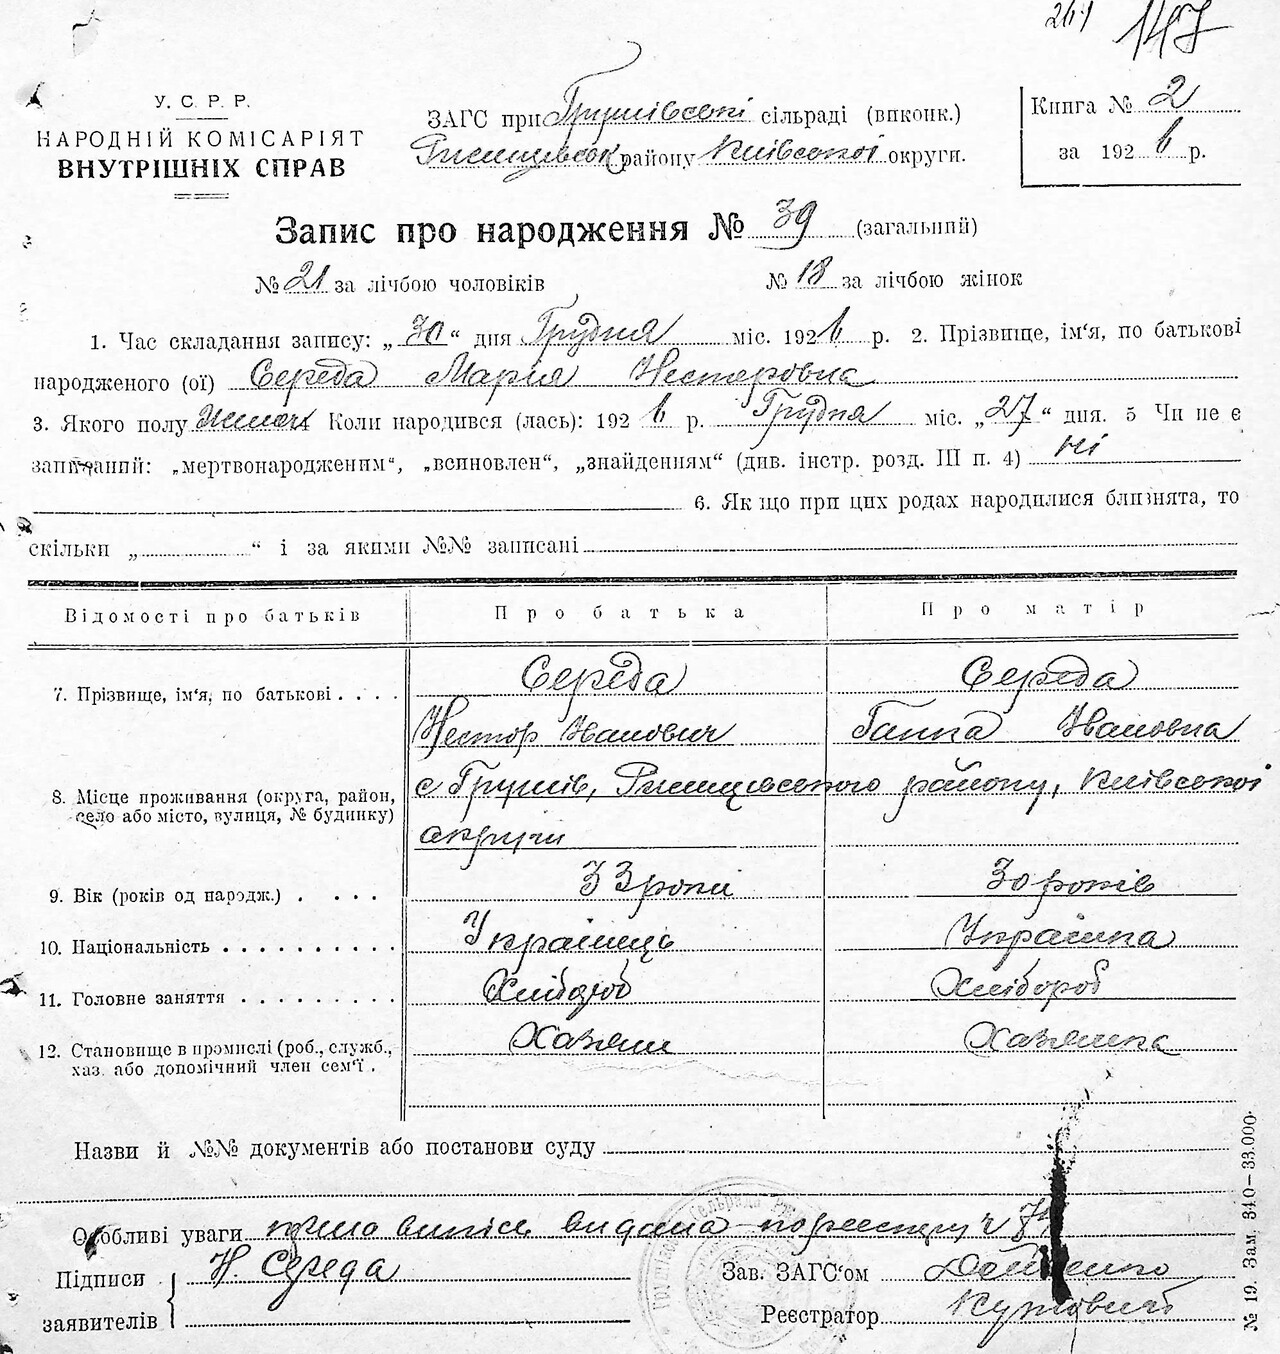 264 147
У. С. Р. Р.
НАРОДНІЙ КОМІСАРІЯТ
ВНУТРІШНІХ СПРАВ
ЗАГС при Грушівській сільраді (виконк.)
Ржищівськ району Київської округи.
Книга № 2
за 1926 р.
Запис про народження № 39 (загальний)
№ 21 за лічбою чоловіків № 18 за лічбою жінок
1. Час складання запису: „30“ дня Грудня міс. 1926 р. 2. Прізвище, ім'я, по батькові
народженого (ої) Середа Марія Несторовна
3. Якого полу Жіноч Коли народився (лась): 1926 р. Грудня міс. „27“ дня. 5 Чи не є
записаний: „мертвонародженим“, „всиновлен“, „знайденням“ (див. інстр. розд. III п. 4) Ні
6. Якщо при цих родах народилися близнята, то
скільки „ “ і за якими №№ записані
Відомості про батьків Про батька Про матір
7. Прізвище, ім'я, по батькові . . . . Середа Середа
Нестор Іванович Ганна Івановна
8. Місце проживання (округа, район, с Грушів, Ржищівського району, Київської
село або місто, вулиця, № будинку) округи
9. Вік (років од народж.) . . . . 33 роки 30 років
10. Національність . . . . . . . . . . Українець Українка
11. Головне заняття . . . . . . . . . Хлібороб Хлібороб
12. Становище в промислі (роб., служб., Хазяин Хазяинка
хаз. або допомічний член сем'ї .
Назви й №№ документів або постанови суду
Особливі уваги випись видана по реестру ч
Підписи Н. Середа Зав. ЗАГС'ом
заявителів Реєстратор
№ 19. Зам. 340–33.000.